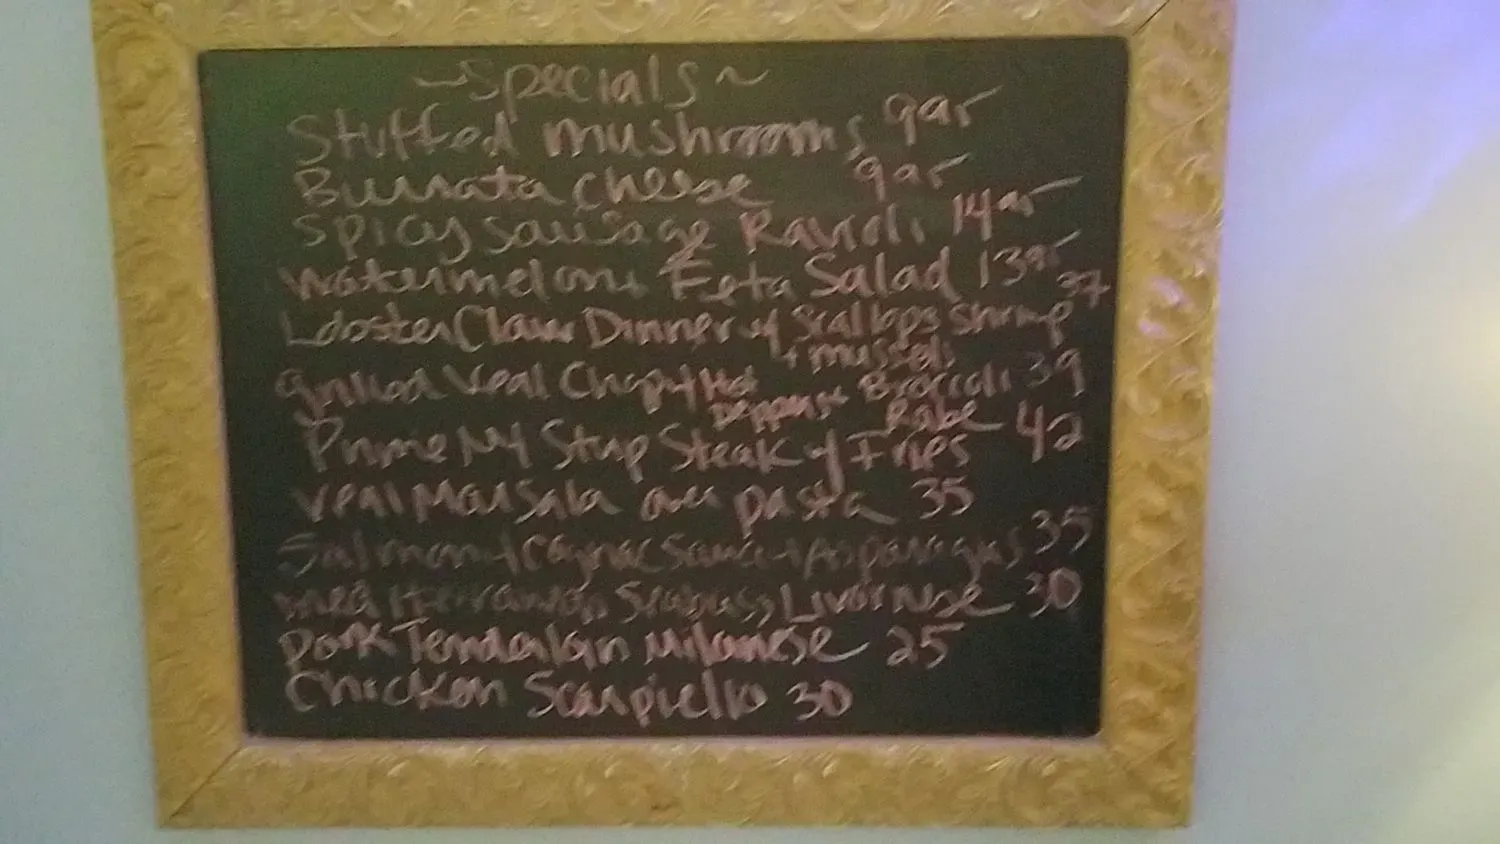 ~Specials~
Stuffed mushrooms 9 95
Burrata Cheese 9 95
Spicy Sausage Ravioli 14 95
Watermelon + Feta Salad 13 95
Lobster Claw Dinner w/ Scallops Shrimp 37
+ mussels
Grilled Veal Chop w/ Hot Peppers + Broccoli Rabe 39
Prime NY Strip Steak w/ Fries 42
Veal Marsala over pasta 35
Salmon w/ Cognac Sauce + Asparagus 35
Mediterranean Seabass Livornese 30
Pork Tenderloin Milanese 25
Chicken Scarpiello 30